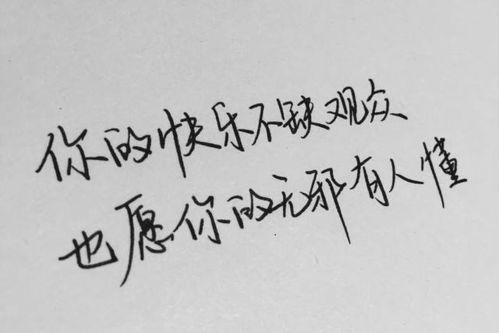 你的快乐不缺观众
也愿你的无邪有人懂